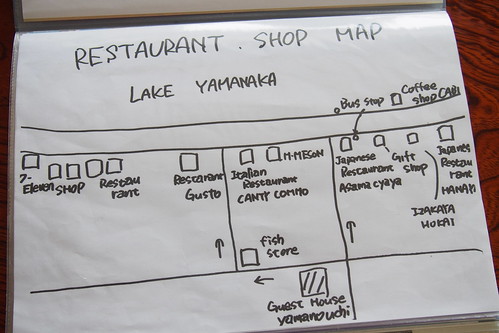 RESTAURANT . SHOP MAP
LAKE YAMANAKA
Bus stop
Coffee
shop CABI
7-
Eleven
SHOP
Restau
rant
Restarant
Gusto
Italian
Restaurant
CANTY COMMO
M-MESON
Japanese
Restaurant
Asamacyaya
Gift
shop
Japanes
Restau
rant
HANAYA
IZAKAYA
HOKAI
fish
store
Guest House
yamanouchi